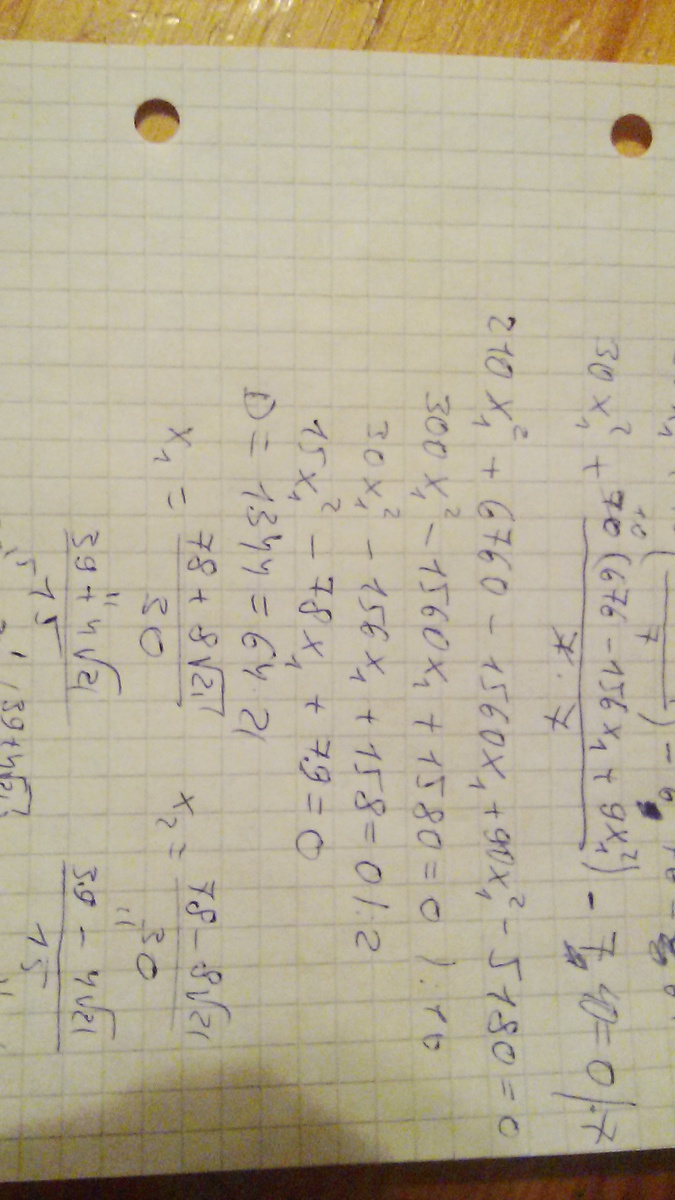 30x₁² + 70(676 - 156x₁ + 9x₁²) / 7·7 - 740 = 0 /·7
210x₁² + 6760 - 1560x₁ + 90x₁² - 5180 = 0
300x₁² - 1560x₁ + 1580 = 0 /:10
30x₁² - 156x₁ + 158 = 0 /:2
15x₁² - 78x₁ + 79 = 0
D = 1344 = 64·21
x₁ = (78 + 8√21) / 30 x₂ = (78 - 8√21) / 30
(39 + 4√21) / 15 (39 - 4√21) / 15